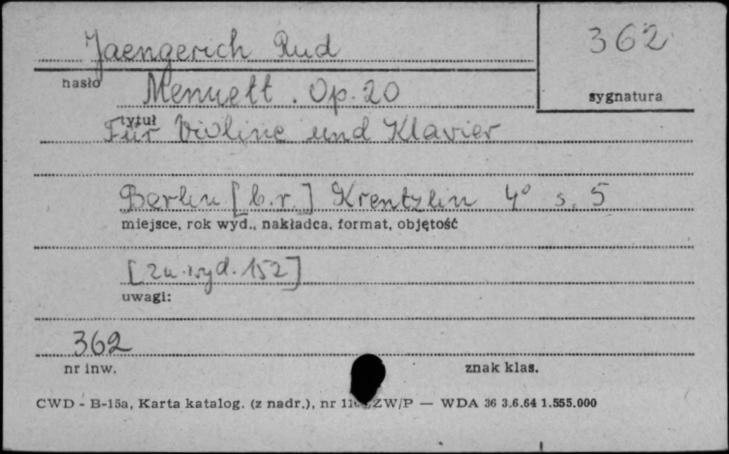 Jaengerich Rud
362
hasło
sygnatura
Menuett. Op. 20
tytuł
Für Violine und Klavier
Berlin [b.r.] Krentzlin 4° s. 5
miejsce, rok wyd., nakładca, format, objętość
[zn. wyd. 152]
uwagi:
362
nr inw.
znak klas.
CWD - B-15a, Karta katalog. (z nadr.), nr ZW/P — WDA 36 3.6.64 1.555.000